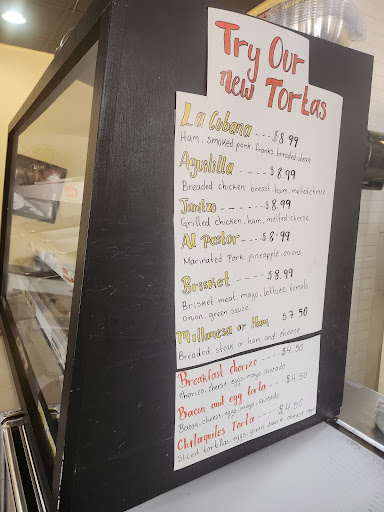 Try Our
new Tortas
La Cubana --- $8.99
Ham, smoked pork, franks, breaded steak
Aguililla ---- $8.99
Breaded chicken breast, ham, melted cheese
Janitzo ------ $8.99
Grilled chicken, ham, melted cheese
Al Pastor --- $8.99
Marinated Pork, pineapple, onions
Brisket ---- $8.99
Brisket meat, mayo, lettuce, tomato,
onion, green sauce
Millanesa or Ham $7.50
Breaded steak or ham and cheese
Breakfast chorizo --- $4.50
chorizo, cheese, eggs, mayo, avocado
Bacon and egg torta --- $4.50
Bacon, cheese, eggs, mayo, avocado
Chilaquiles Torta --- $4.50
Sliced tortillas, eggs, green sauce, cheese